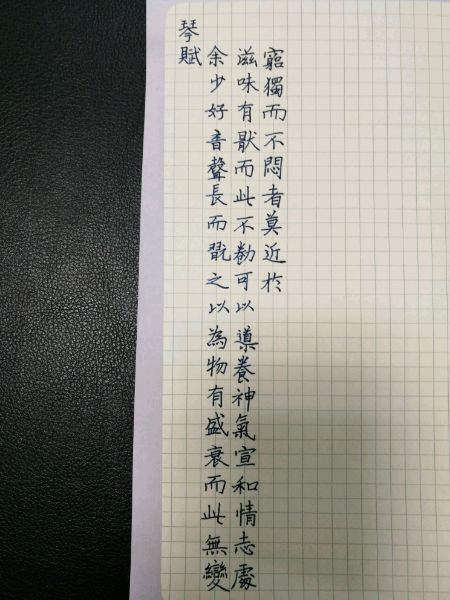 琴賦
余少好音聲長而翫之以為物有盛衰而此無變
滋味有猒而此不勌可以導養神氣宣和情志處
窮獨而不悶者莫近於